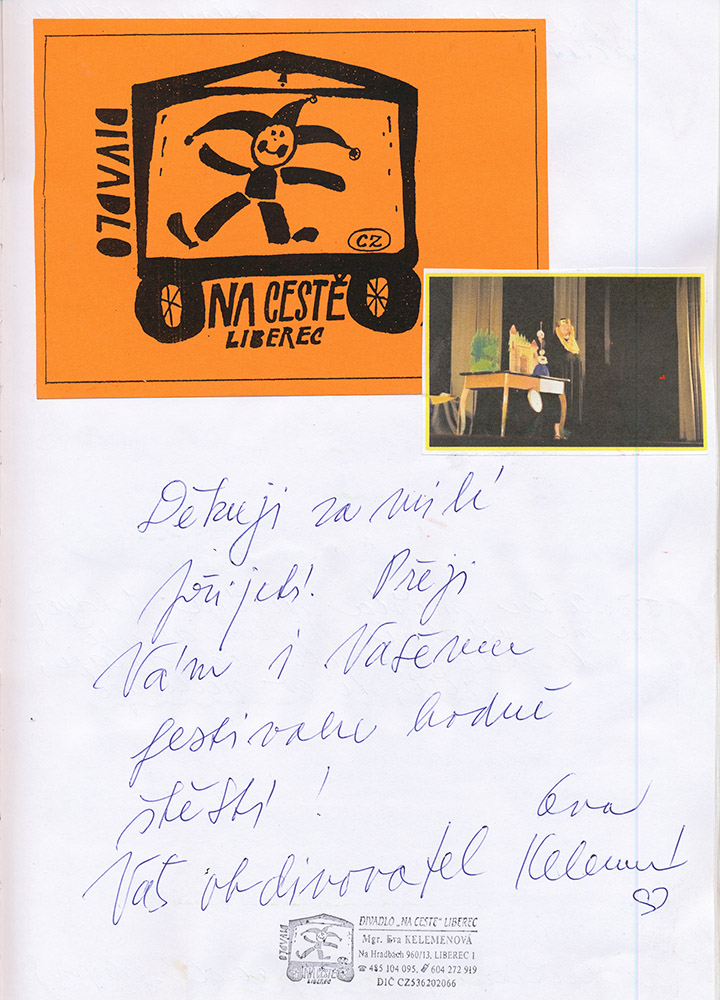 DIVADLO
CZ
NA CESTĚ
LIBEREC
Děkuji za milé
přijetí. Přeji
Vám i Vašemu
festivalu hodně
štěstí!
Eva
Váš obdivovatel
DIVADLO
NA CESTĚ
LIBEREC
DIVADLO „NA CESTĚ" LIBEREC
Mgr. Eva KELEMENOVÁ
Na Hradbách 960/13, LIBEREC 1
☎ 485 104 095, 604 272 919
DIČ CZ536202066